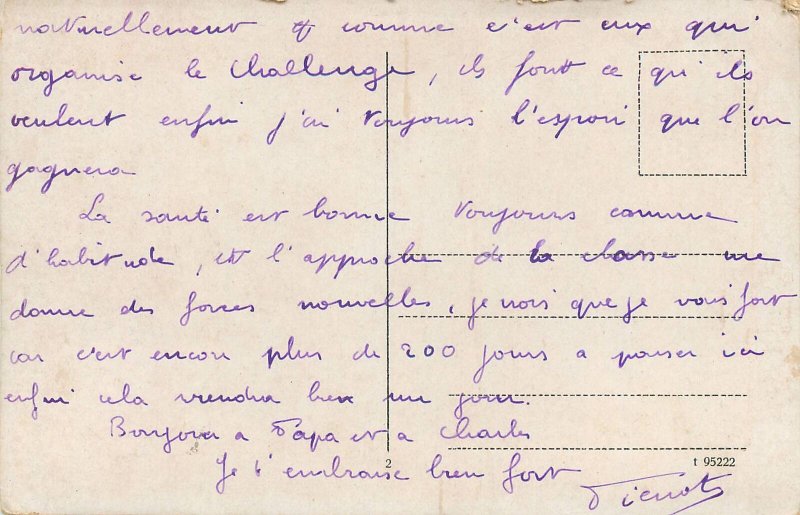 naturellement & comme c'est eux qui
organise le Challenge, ils font ce qu'ils
veulent enfin j'ai toujours l'espoir que l'on
gagnera
La santé est bonne toujours comme
d'habitude, et l'approche de la classe me
donne des forces nouvelles, je vois que je vais fort
car c'est encor plus de 200 jours a passer ici
enfin cela viendra bien un jour.
Bonjour a Papa et a Charles
Je t'embrasse bien fort
2
t 95222